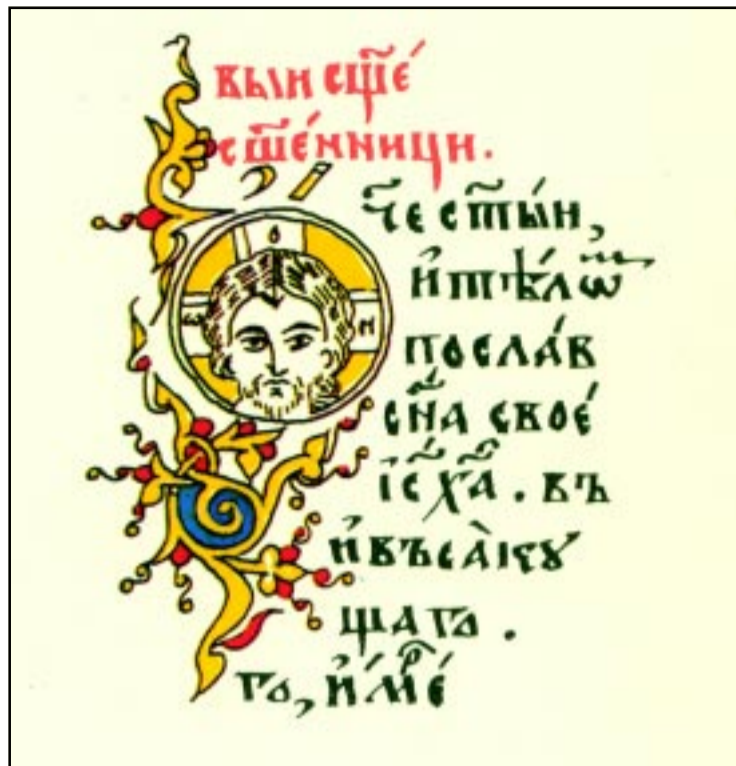 выи сщ҃е́
сщ҃е́нници.
ч҃е ст҃ы́и,
и҆ тѣ́лѡⷨ
посла́в
сн҃а свое́
і҆с҃ х҃а. въ
и҆ въса̀ кꙋ
щаго.
го, и҆ мⷬ҇е́